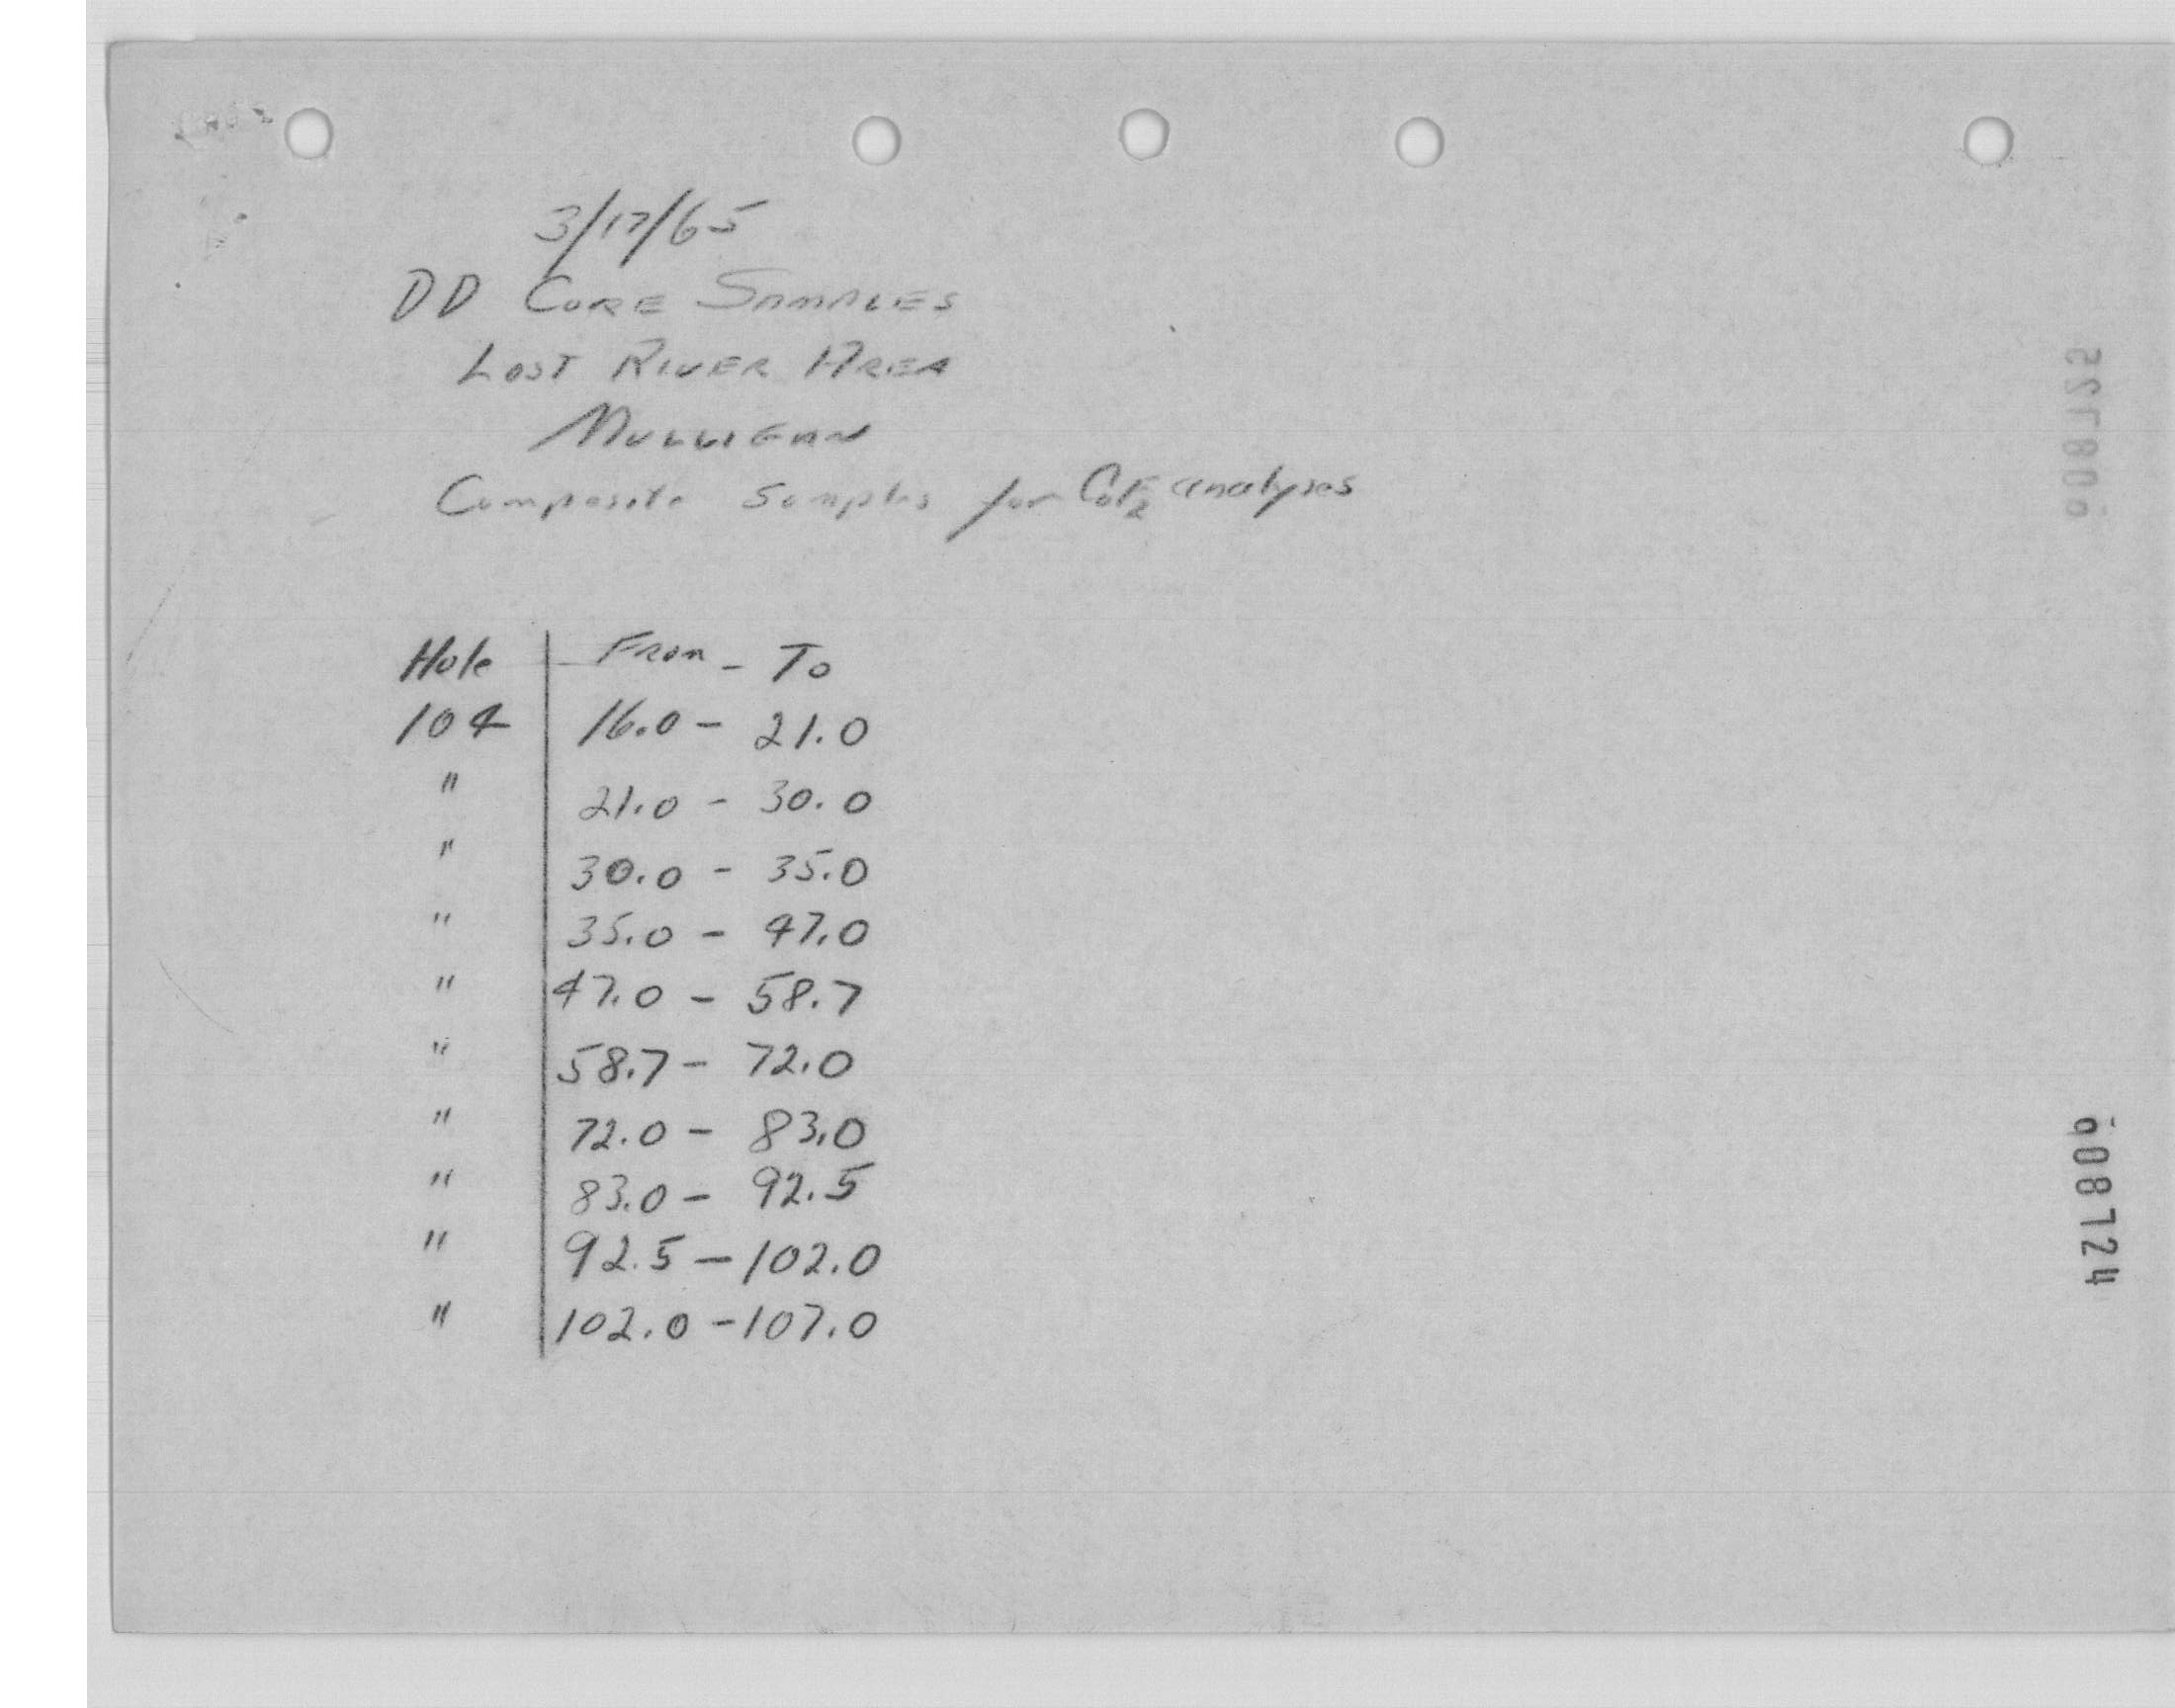 3/17/65
DD CORE SAMPLES
LOST RIVER AREA
MULLIGAN
Composite Samples for CaF2 analyses
Hole From - To
104 16.0 - 21.0
" 21.0 - 30.0
" 30.0 - 35.0
" 35.0 - 47.0
" 47.0 - 58.7
" 58.7 - 72.0
" 72.0 - 83.0
" 83.0 - 92.5
" 92.5 - 102.0
" 102.0 - 107.0
608725
608724